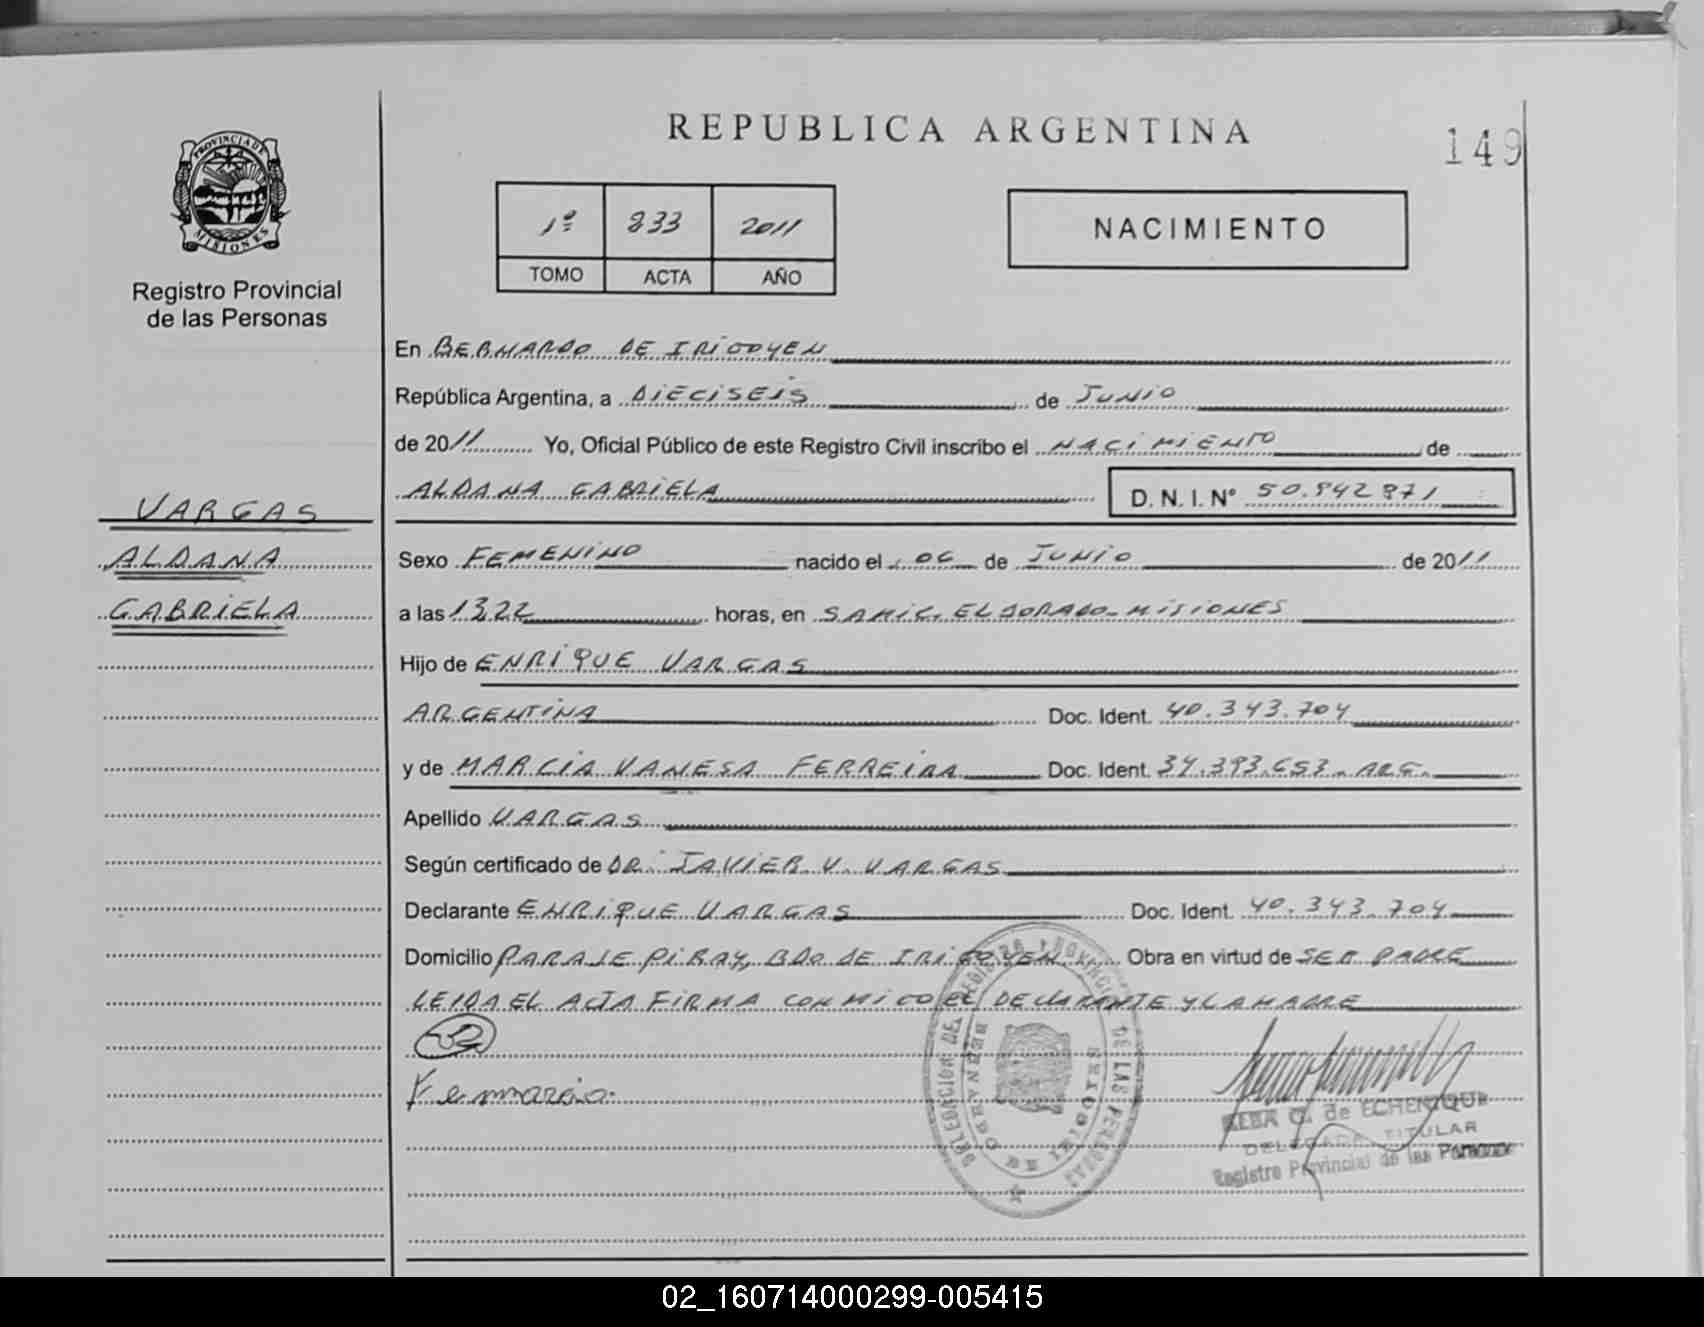 REPUBLICA ARGENTINA
149
PROVINCIA DE MISIONES
Registro Provincial
de las Personas
1º 833 2011
TOMO ACTA AÑO
NACIMIENTO
En BERNARDO DE IRIGOYEN
República Argentina, a DIECISEIS de JUNIO
de 2011 Yo, Oficial Público de este Registro Civil inscribo el NACIMIENTO de
ALDANA GABRIELA D. N. I. Nº 50.942.871
VARGAS
ALDANA
GABRIELA
Sexo FEMENINO nacido el 06 de JUNIO de 2011
a las 13,22 horas, en SAMIC. ELDORADO-MISIONES
Hijo de ENRIQUE VARGAS
ARGENTINA Doc. Ident. 40.343.704
y de MARCIA VANESA FERREIRA Doc. Ident. 34.393.653-ARG.
Apellido VARGAS
Según certificado de DR. JAVIER V. VARGAS
Declarante ENRIQUE VARGAS Doc. Ident. 40.343.704
Domicilio PARAJE PIRAY, BDO DE IRIGOYEN Obra en virtud de SER PADRE
LEIDA EL ACTA FIRMA CONMIGO EL DECLARANTE Y LA MADRE
DELEGACION DE REGISTRO PROVINCIAL DE LAS PERSONAS
BERNARDO DE IRIGOYEN
ALBA G. de ECHENIQUE
DELEGADA TITULAR
Registro Provincial de las Personas
02_160714000299-005415